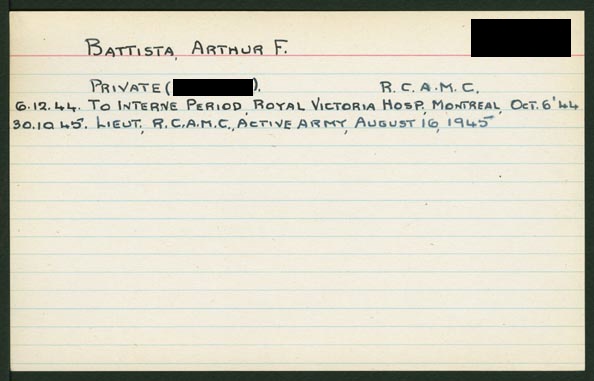 BATTISTA, ARTHUR F.
PRIVATE ( ). R.C.A.M.C.
6.12.44. TO INTERNE PERIOD, ROYAL VICTORIA HOSP, MONTREAL, OCT. 6'44
30.10.45. LIEUT, R.C.A.M.C., ACTIVE ARMY, AUGUST 16, 1945